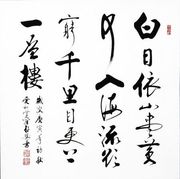 白日依山盡黃
河入海流欲
窮千里目更上
一層樓